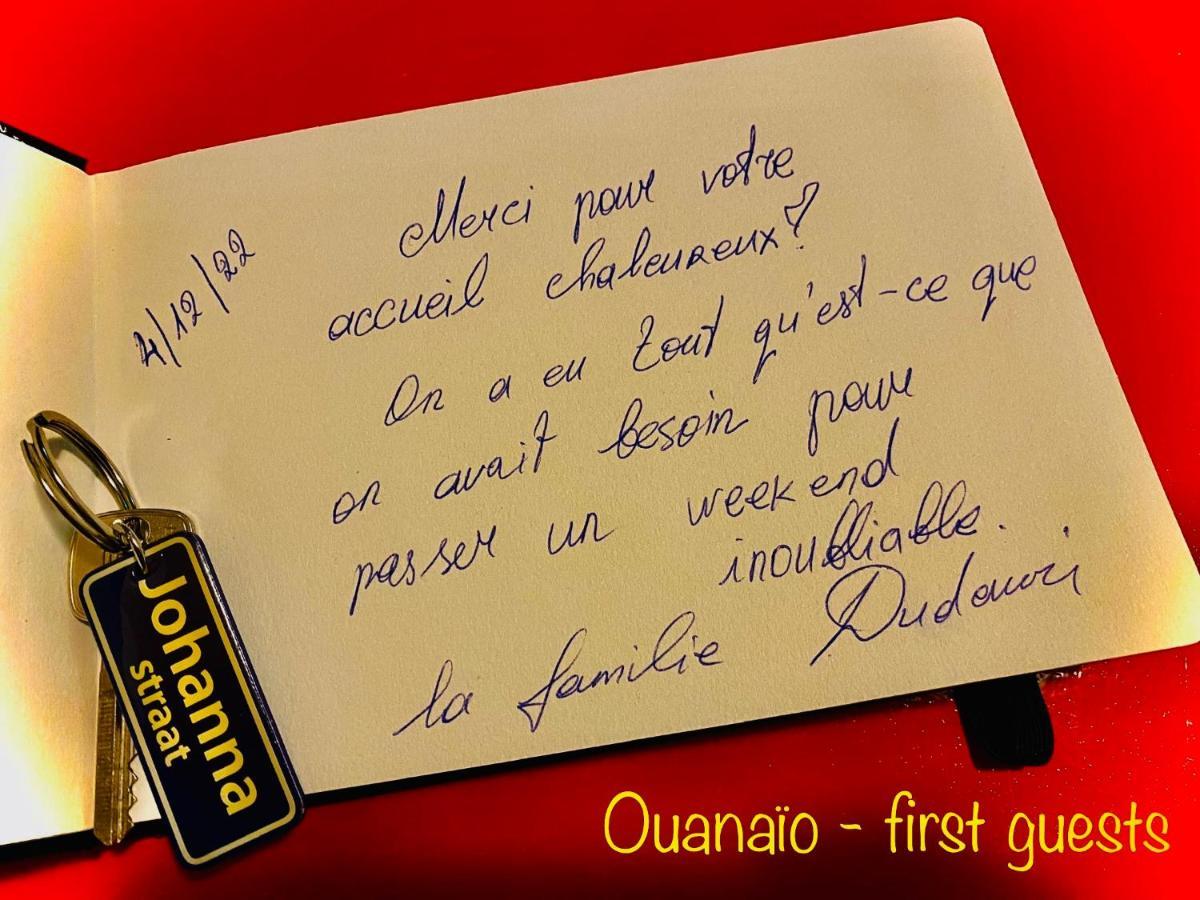 4/12/22
Merci pour votre
accueil chaleureux!
On a eu tout qu'est-ce que
on avait besoin pour
passer un weekend
inoubliable.
la familie
Johanna
straat
Ouanaïo - first guests